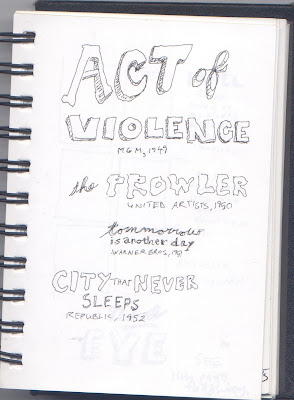 ACT of
VIOLENCE
MGM, 1949
the PROWLER
UNITED ARTISTS, 1950
tommorrow
is another day
WARNER BROS, 1951
CITY THAT NEVER
SLEEPS
REPUBLIC, 1952
EYE
5